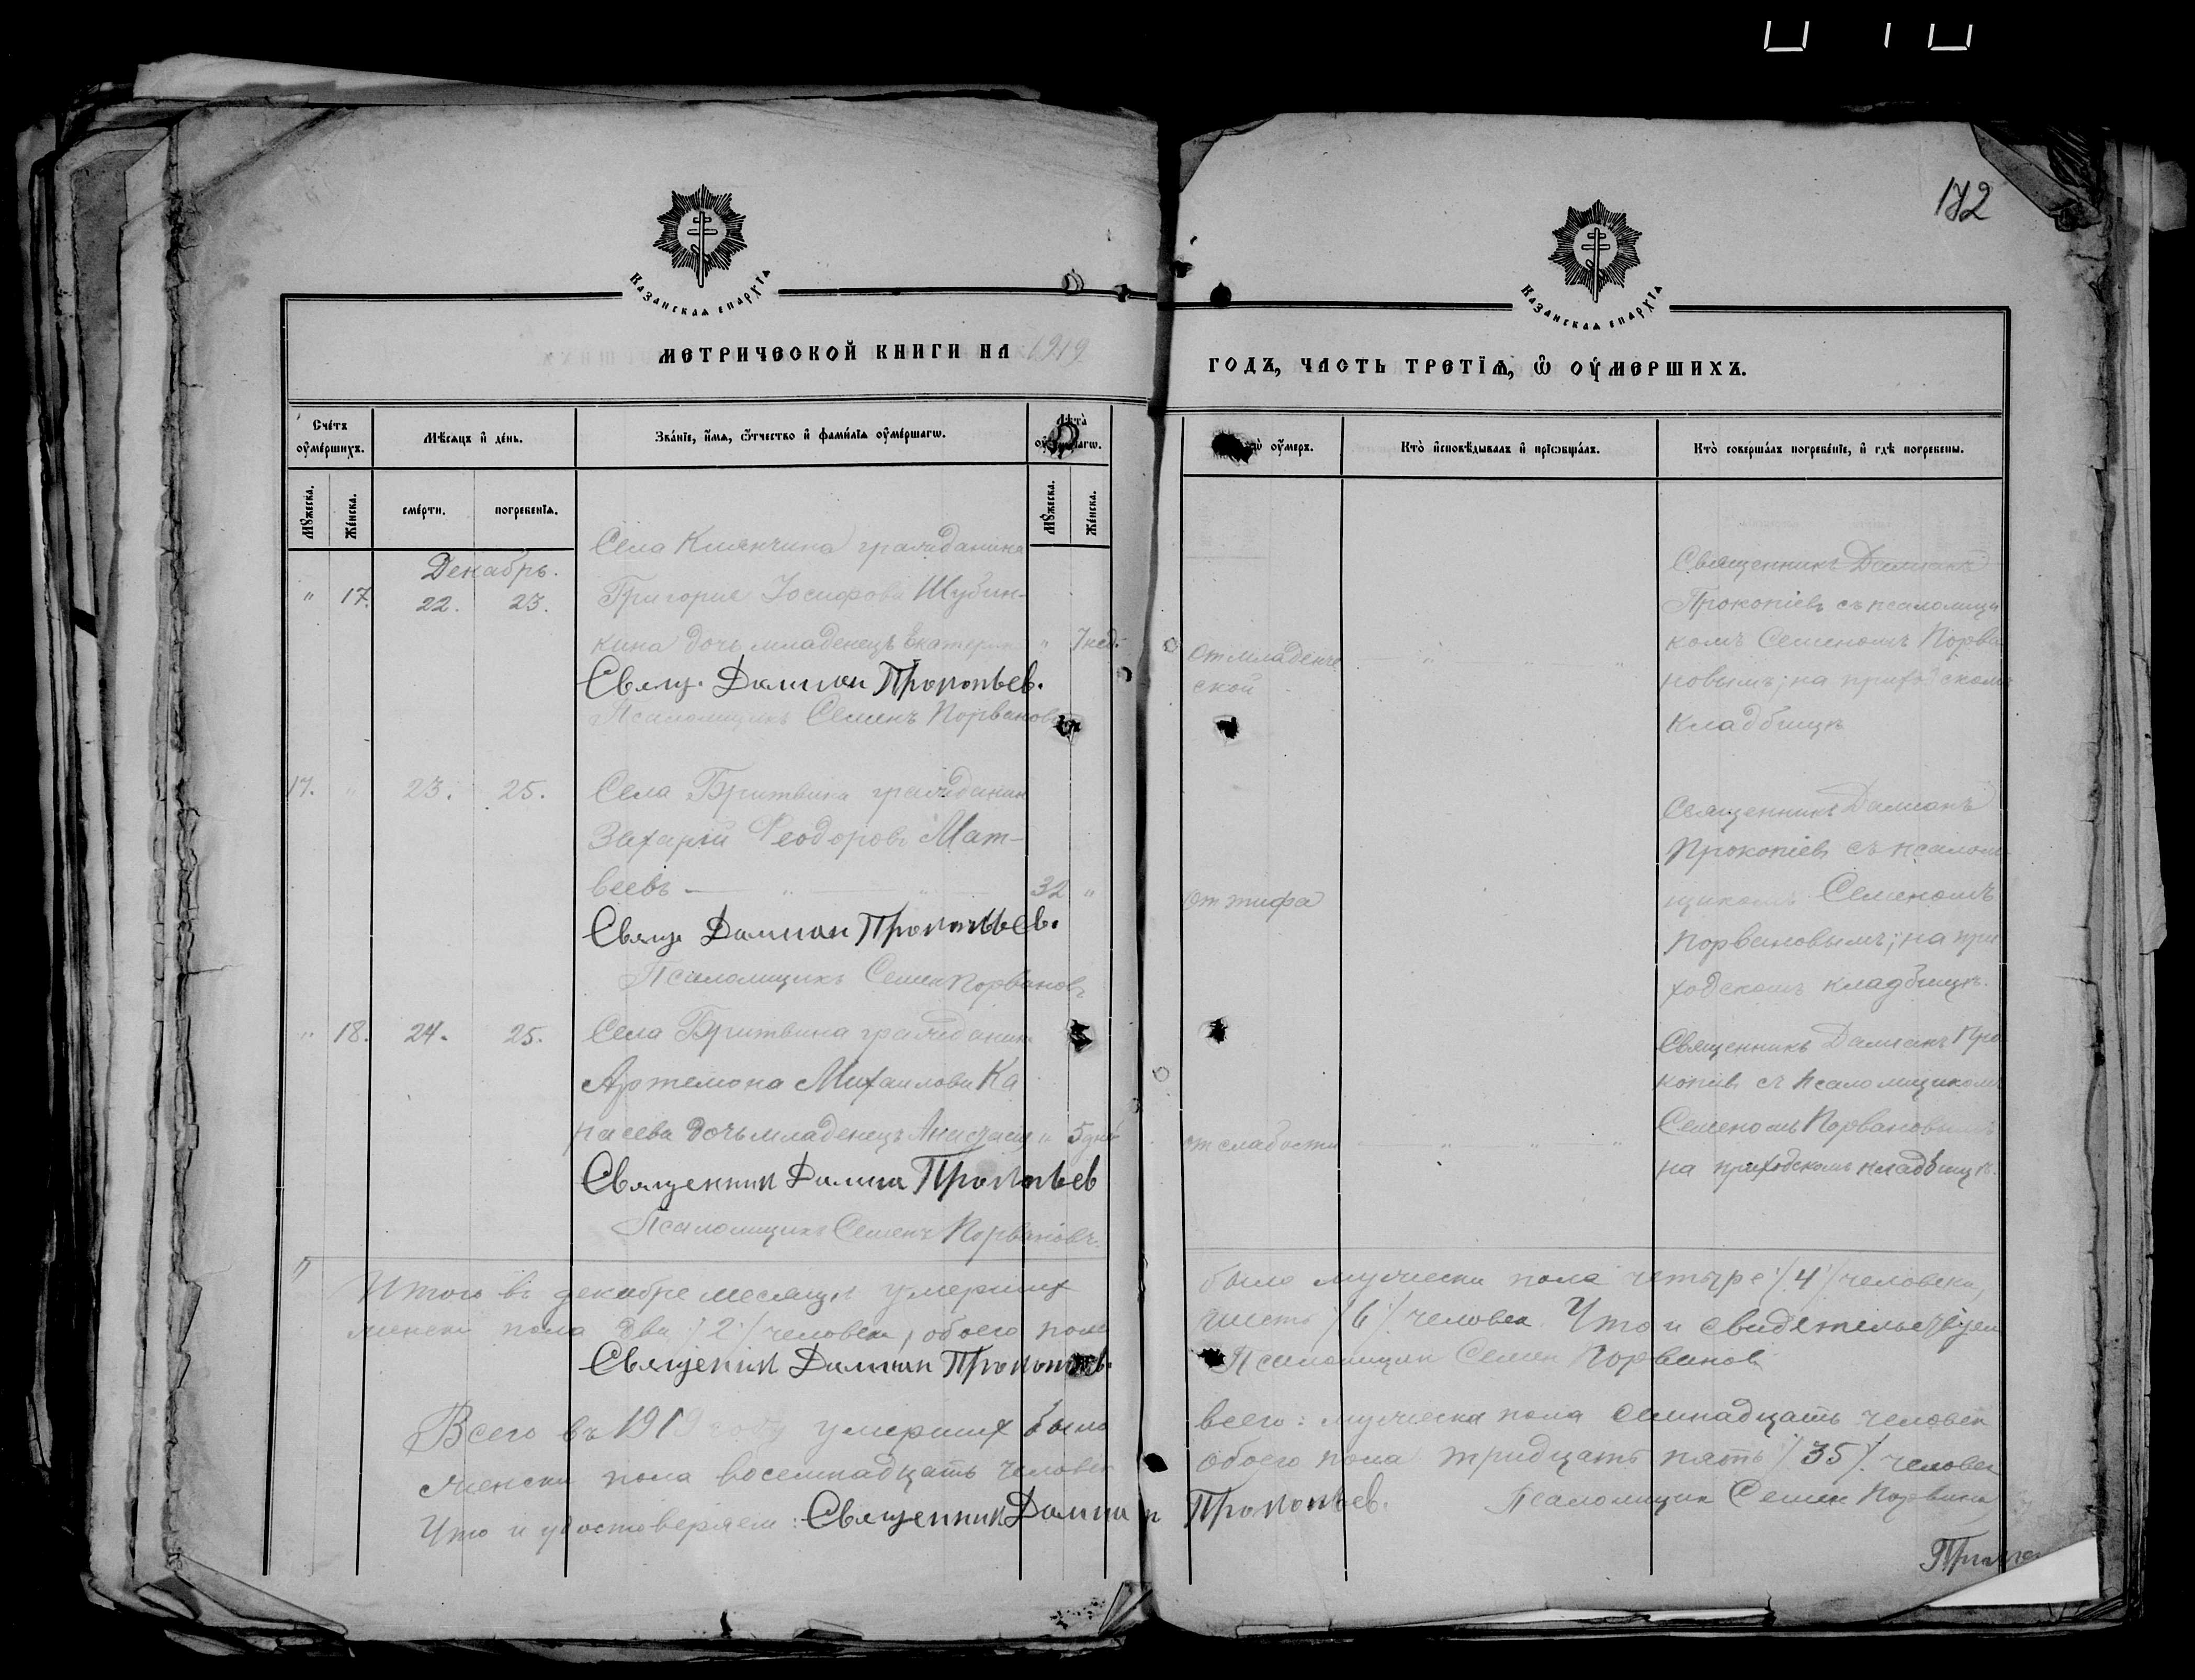 172
Казанская епархїа
Казанская епархїа
МЕТРИЧЕСКОЙ КНИГИ НА 1919
ГОДЪ, ЧАСТЬ ТРЕТІѦ, Ѡ ОУМЕРШИХЪ.
Счётъ оумершихъ.
Мѣсяцъ и день.
Званіе, имя, отчество и фамилія оумершагѡ.
Лѣта
Кто исповѣдывалъ и пріобщалъ.
Кто совершалъ погребеніе, и гдѣ погребены.
оумеръ.
Мужеска.
Женска.
смерти.
погребенія.
Мужеска.
Женска.
Декабрь.
" 17. 22. 23.
Села Килячина гражданина
Григорія Іосифова Шубин-
кина дочь младенецъ Екатерина " 7 нед.
Свящ. Дамиан Прокопьев.
Псаломщикъ Семенъ Порвановъ
от младенче
ской
Священникъ Дамианъ
Прокопіевъ съ псаломщи
комъ Семеномъ Порва
новымъ; на приходскомъ
кладбищѣ
17. " 23. 25.
Села Бритвина гражданин
Захарій Феодоровъ Мат-
веевъ 32 "
Свящ. Дамиан Прокопьев.
Псаломщикъ Семен Порвановъ
от тифа
Священникъ Дамианъ
Прокопіевъ съ псалом
щикомъ Семеномъ
Порвановымъ; на при
ходскомъ кладбищѣ.
" 18. 24. 25.
Села Бритвина гражданина
Артемона Михаилова Ка
насева дочь младенецъ Анастасія " 5 дней
Священник Дамиан Прокопьев
Псаломщикъ Семенъ Порвановъ.
от слабости
Священникъ Дамианъ Про
копіевъ съ псаломщикомъ
Семеномъ Порвановымъ
на приходскомъ кладбищѣ.
Итого въ декабре месяце умерших
было мужеска пола четыре /4/ человека,
женска пола два /2/ человека, обоего пола
шесть /6/ человек. Что и свидетельствуем
Священник Дамиан Прокопьев.
Псаломщик Семен Порванов
Всего въ 1919 году умерших было
всего: мужеска пола семнадцать человек
женска пола восемнадцать человек
обоего пола тридцать пять /35/ человек
Что и удостоверяем: Священник Дамиан Прокопьев.
Псаломщик Семен Порванов